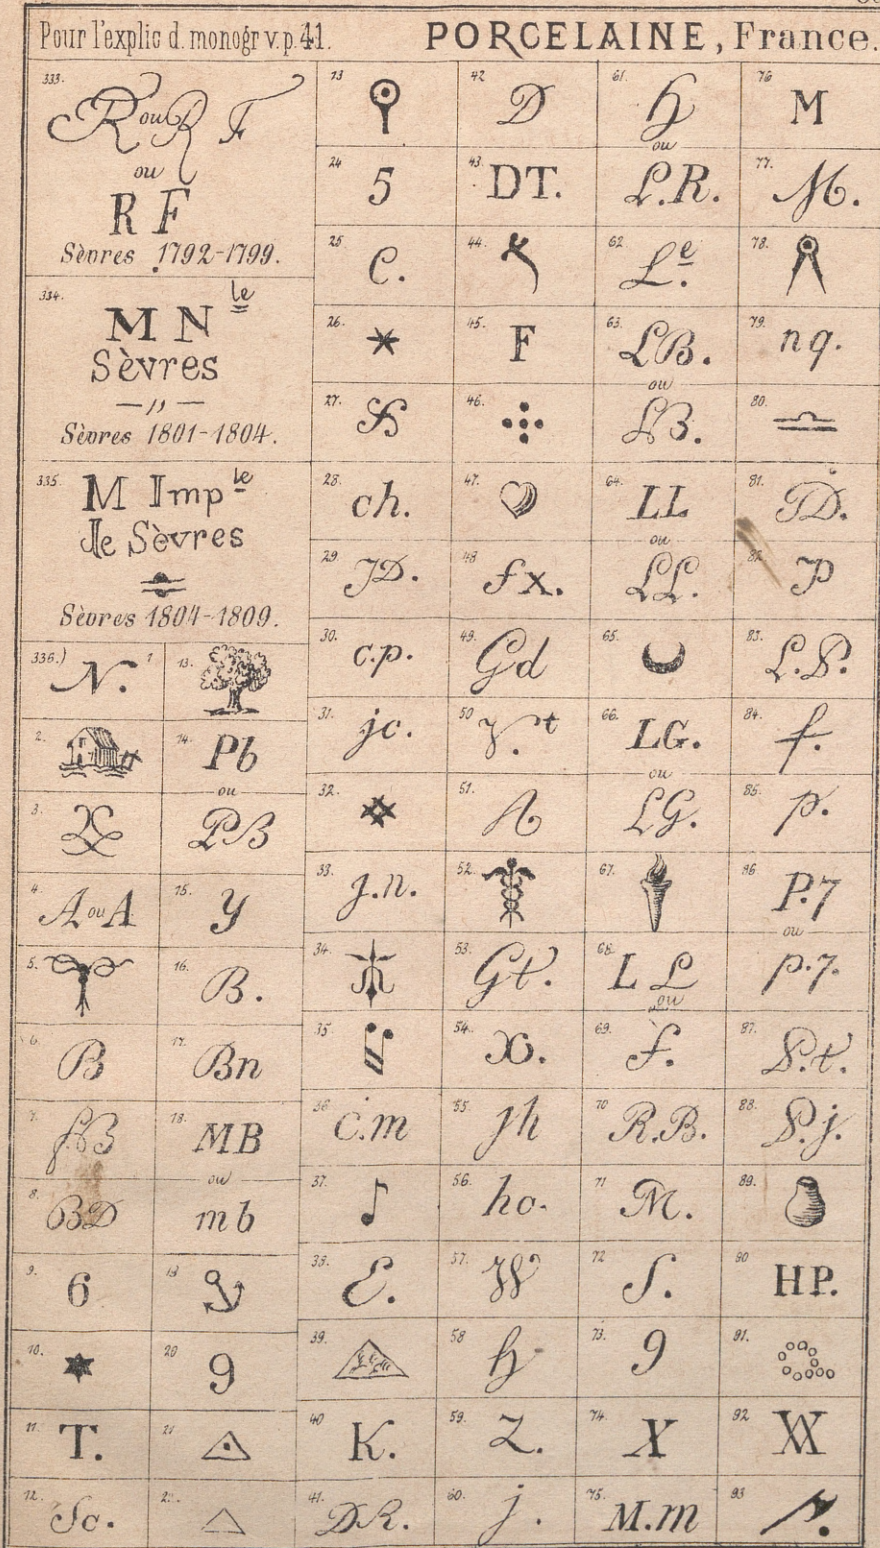 Pour l'explic d. monogr v.p. 41.
PORCELAINE, France.
333.
R ou R F
ou
R F
Sèvres 1792-1799.
334.
M N le
Sèvres
— " —
Sèvres 1801-1804.
335.
M Imp le
de Sèvres
Sèvres 1804-1809.
336.) N. 1
2.
3.
4. A ou A
5.
6. B
7.
8. BD
9. 6
10.
11. T.
12. Sc.
13.
14. Pb
ou
PB
15. y
16. B.
17. Bn
18. MB
ou
mb
19
20 9
21
13
24 5
25 C.
26.
27.
28. ch.
29. JD.
30. c.p.
31. jc.
32.
33. j.n.
34.
35
36 c.m
37.
38. E.
39.
40 K.
41. DR.
42 D
43. DT.
44.
45. F
46.
47.
48 fx.
49. Gd
50 V.t
51. A
52.
53. Gt.
54. X.
55. jh
56. ho.
57. W
58 h
59. Z.
60. j.
61. h
ou
L.R.
62. Le.
63. LB.
ou
LB.
64. LL
ou
LL.
65.
66. LG.
ou
LG.
67.
68. L L
ou
69. f.
70 R.B.
71 M.
72 S.
73. 9
74. X
75. M.m
76 M
77. M.
78.
79. nq.
80.
81. PD.
82. P
83. L.P.
84. f.
85. p.
86 P.7
ou
p.7.
87. P.t.
88. P.j.
89.
90 HP.
91.
92
93